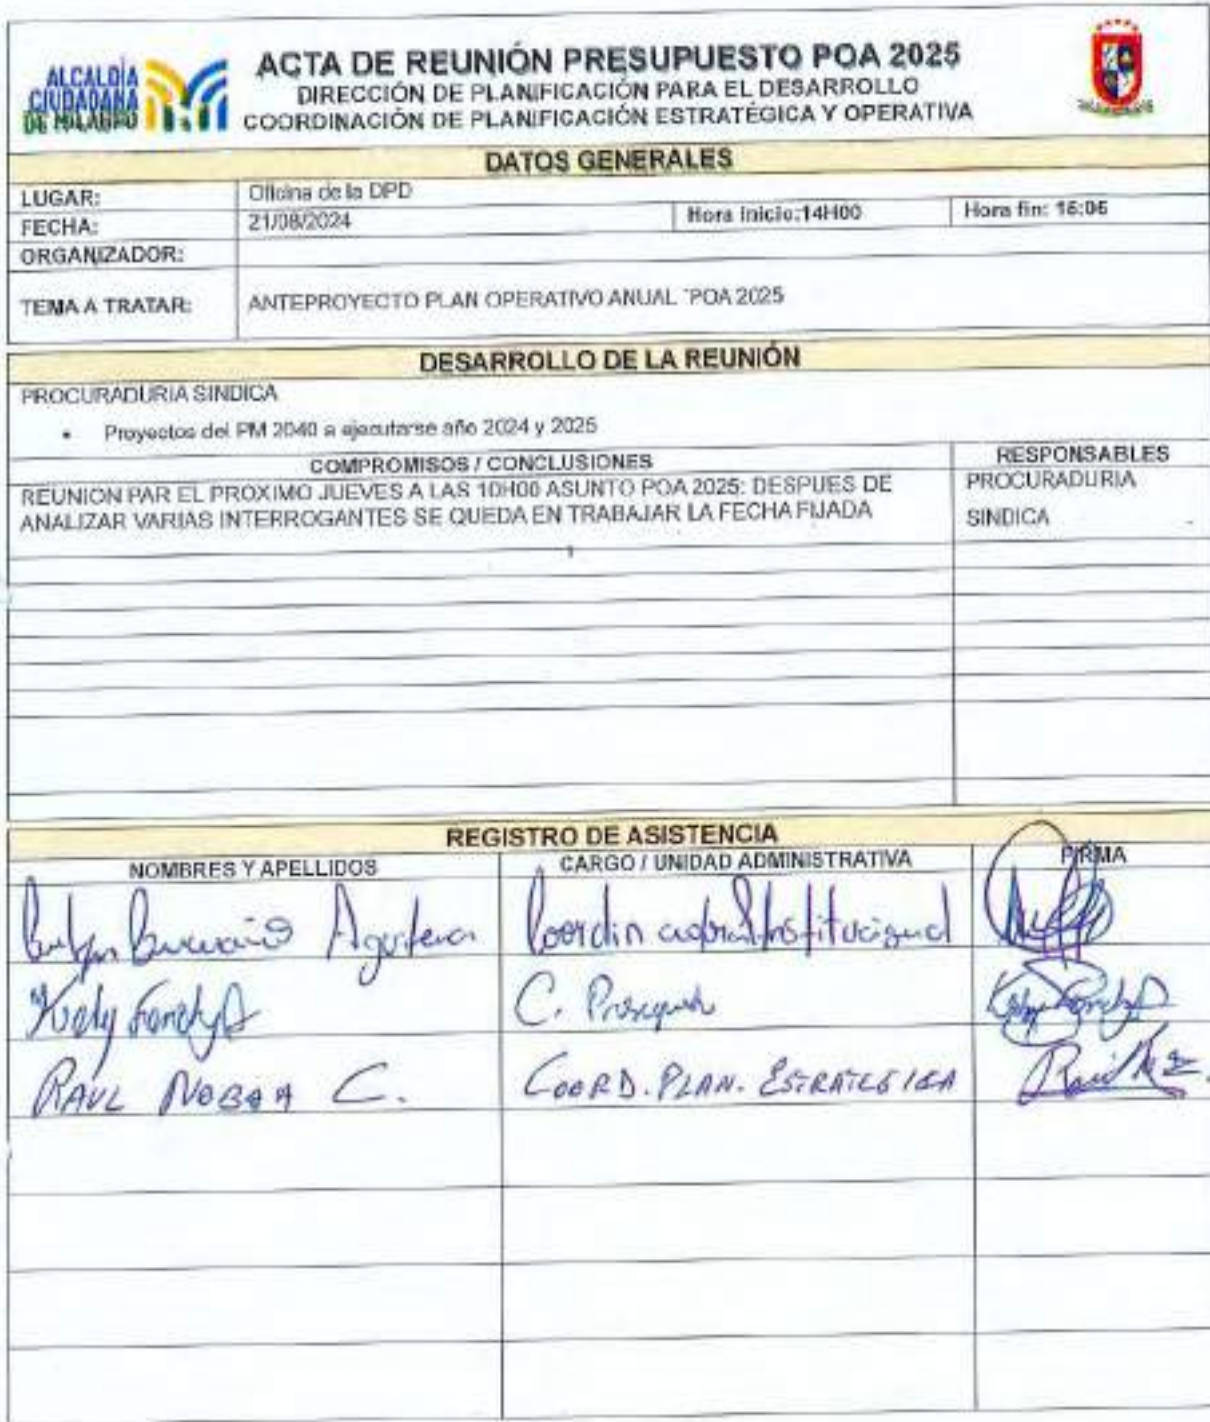 ALCALDÍA
CIUDADANA
DE MILAGRO
ACTA DE REUNIÓN PRESUPUESTO POA 2025
DIRECCIÓN DE PLANIFICACIÓN PARA EL DESARROLLO
COORDINACIÓN DE PLANIFICACIÓN ESTRATÉGICA Y OPERATIVA
DATOS GENERALES
LUGAR: Oficina de la DPD
FECHA: 21/08/2024 Hora inicio:14H00 Hora fin:
ORGANIZADOR:
TEMA A TRATAR: ANTEPROYECTO PLAN OPERATIVO ANUAL "POA 2025
DESARROLLO DE LA REUNIÓN
PROCURADURIA SINDICA
• Proyectos del PM 2040 a ejecutarse año 2024 y 2025
COMPROMISOS / CONCLUSIONES RESPONSABLES
REUNION PAR EL PROXIMO JUEVES A LAS 10H00 ASUNTO POA 2025: DESPUES DE PROCURADURIA
ANALIZAR VARIAS INTERROGANTES SE QUEDA EN TRABAJAR LA FECHA FIJADA SINDICA
REGISTRO DE ASISTENCIA
NOMBRES Y APELLIDOS CARGO / UNIDAD ADMINISTRATIVA FIRMA
Institucional
C.
RAUL NOBOA C. COORD. PLAN. ESTRATEGICA